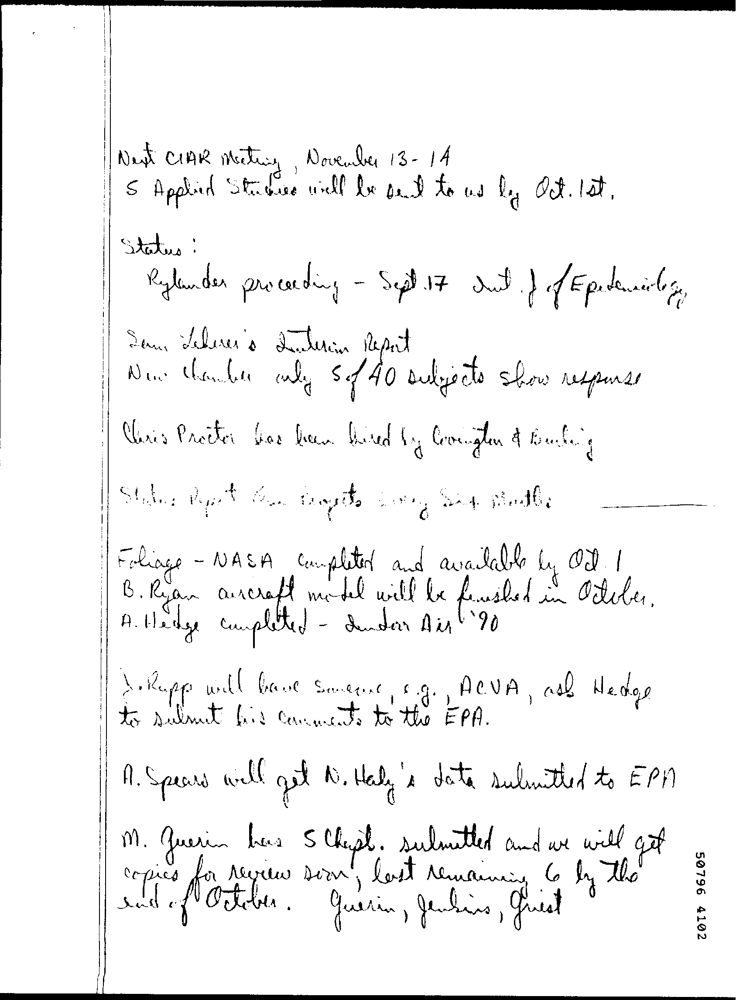 Next CIAR Meeting, November 13-14
5 Applied Studies will be sent to us by Oct. 1st.
Status:
Rylander proceeding - Sept. 17 Int. J of Epidemiology
Sam Lehrer's Interim Report
New chamber only 5 of 40 subjects show response
Chris Proctor has been hired by Covington & Burling
Status Report Projects Every Six Months
Foliage - NASA completed and available by Oct. 1
B. Ryan aircraft model will be finished in October.
A. Hedge completed - Indoor Air '90
J. Rupp will have someone, e.g., ACVA, ask Hedge
to submit his comments to the EPA.
A. Spears will get N. Haley's data submitted to EPA
M. Guerin has 5 Chapt. submitted and we will get
copies for review soon, last remaining 6 by the
end of October. Guerin, Jenkins, Griest
50796 4102